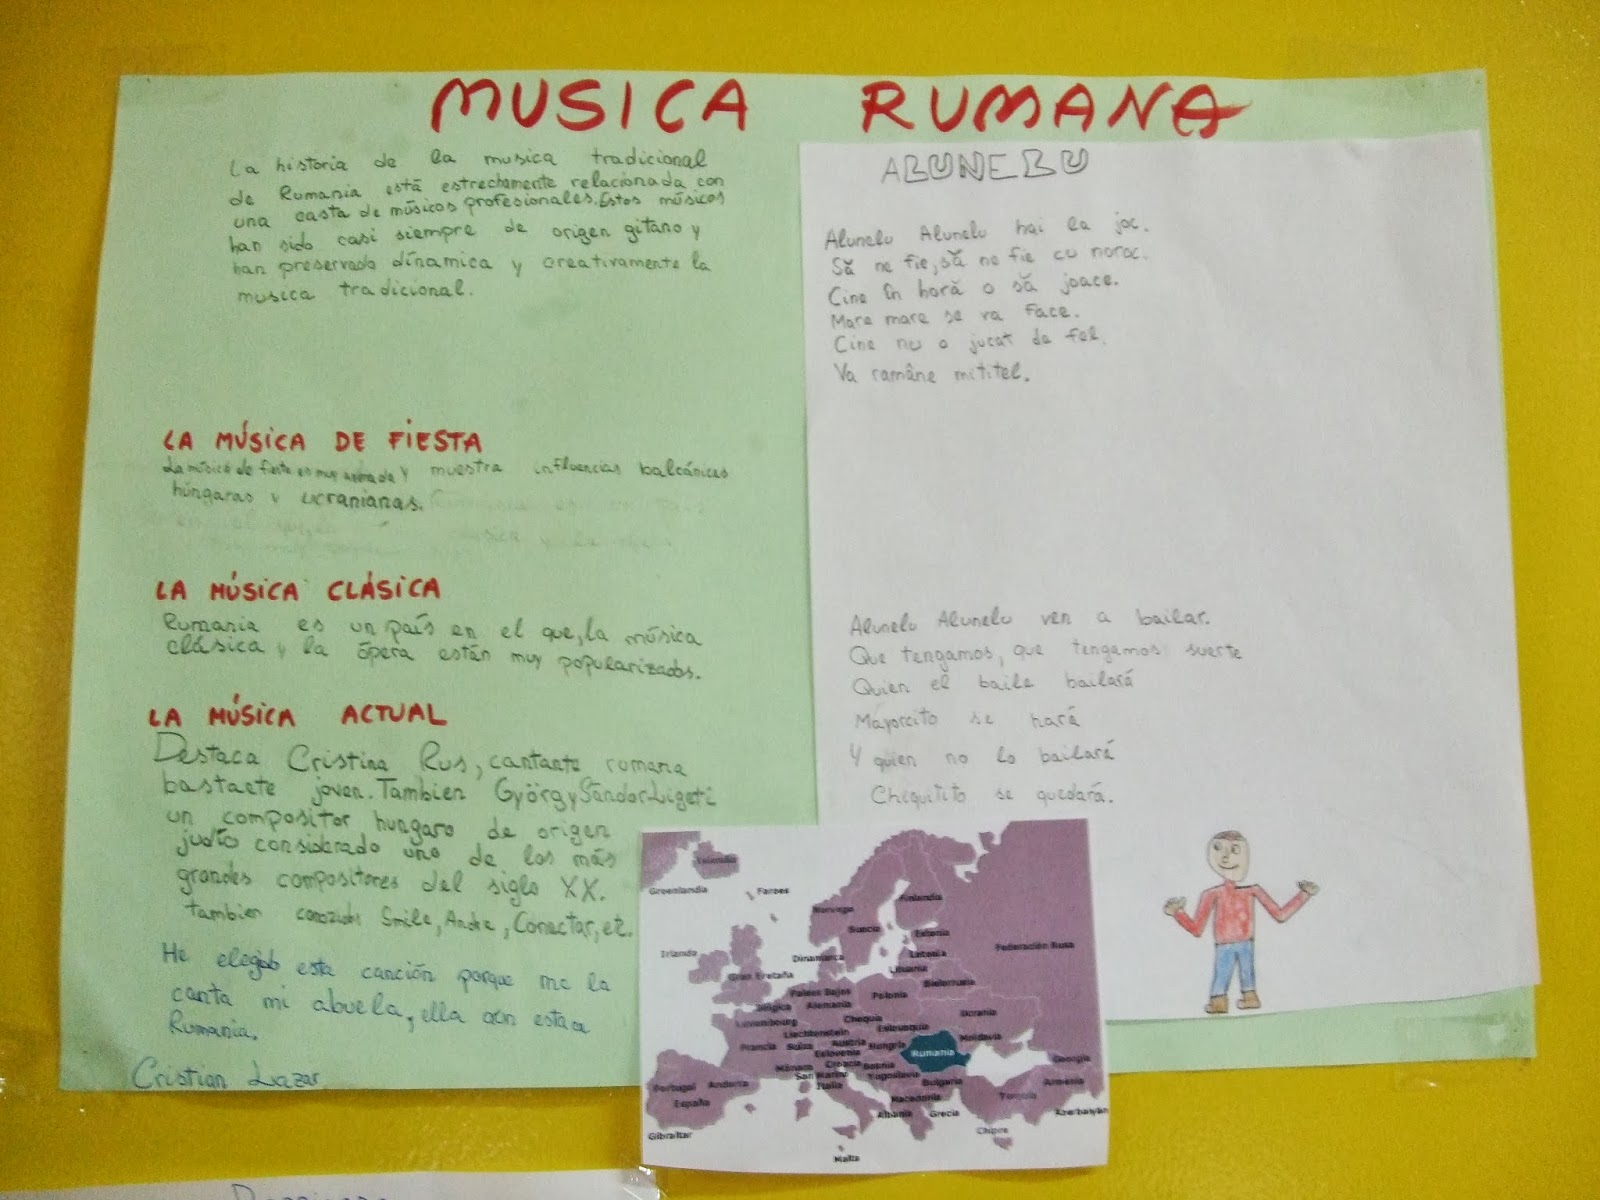 MUSICA RUMANA
La historia de la musica tradicional
de Rumania está estrechamente relacionada con
una casta de músicos profesionales. Estos músicos
han sido casi siempre de origen gitano y
han preservado dínamica y creativamente la
musica tradicional.
LA MÚSICA DE FIESTA
La música de fiesta es muy animada y muestra influencias balcánicas
húngaras y ucranianas.
LA MÚSICA CLÁSICA
Rumania es un país en el que, la música
clásica y la ópera están muy popularizados.
LA MÚSICA ACTUAL
Destaca Cristina Rus, cantante romana
bastante joven. Tambien György Sándor Ligeti
un compositor hungaro de origen
judío considerado uno de los más
grandes compositores del siglo XX.
tambien conozidos Smile, Andra, Conectar, etc.
He elegido esta canción porque me la
canta mi abuela, ella aún esta a
Rumania.
Cristian Lazar
ALUNELU
Alunelu Alunelu hai la joc.
Să ne fie, să ne fie cu noroc.
Cine în horă o să joace.
Mare mare se va face.
Cine nu o jucat de fel.
Va ramâne mititel.
Alunelu Alunelu ven a bailar.
Que tengamos, que tengamos suerte
Quien el baile bailará
Mayorcito se hará
Y quien no lo bailará
Chiquitito se quedará.
Islandia
Groenlandia
Faroes
Noruega
Finlandia
Suecia
Estonia
Federación Rusa
Irlanda
Dinamarca
Letonia
Lituania
Gran Bretaña
Bielorrusia
Países Bajos
Polonia
Bélgica
Alemania
Luxembourg
Chequia
Ucrania
Liechtenstein
Eslovaquia
Francia
Suiza
Austria
Hungría
Moldavia
Eslovenia
Rumania
Mónaco
Croacia
Bosnia
Georgia
San Marino
Yugoslavia
Portugal
Andorra
Italia
Bulgaria
Armenia
España
Macedonia
Turquía
Azerbaiyán
Albania
Grecia
Gibraltar
Chipre
Malta